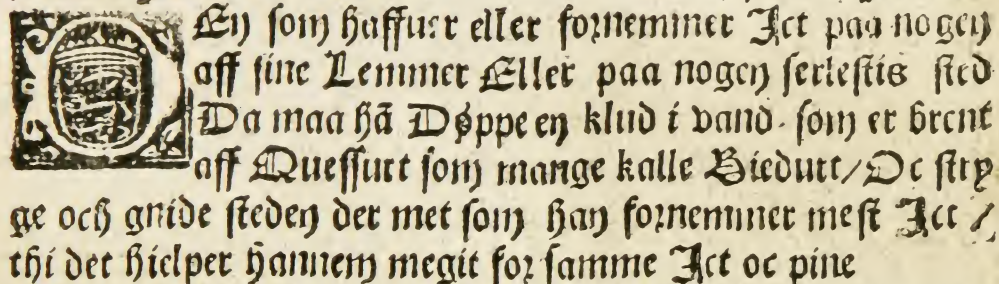 DEn som haffuer eller fornemmer Ict paa nogen
aff sine Lemmer Eller paa nogen serlestis sted
Da maa hã Døppe en klud i vand som er brent
aff Quessurt som mange kalle Biedurt/Oc stry
ge och gnide steden der met som han fornemmer mest Ict /
thi det hielper hannem megit for samme Ict oc pine